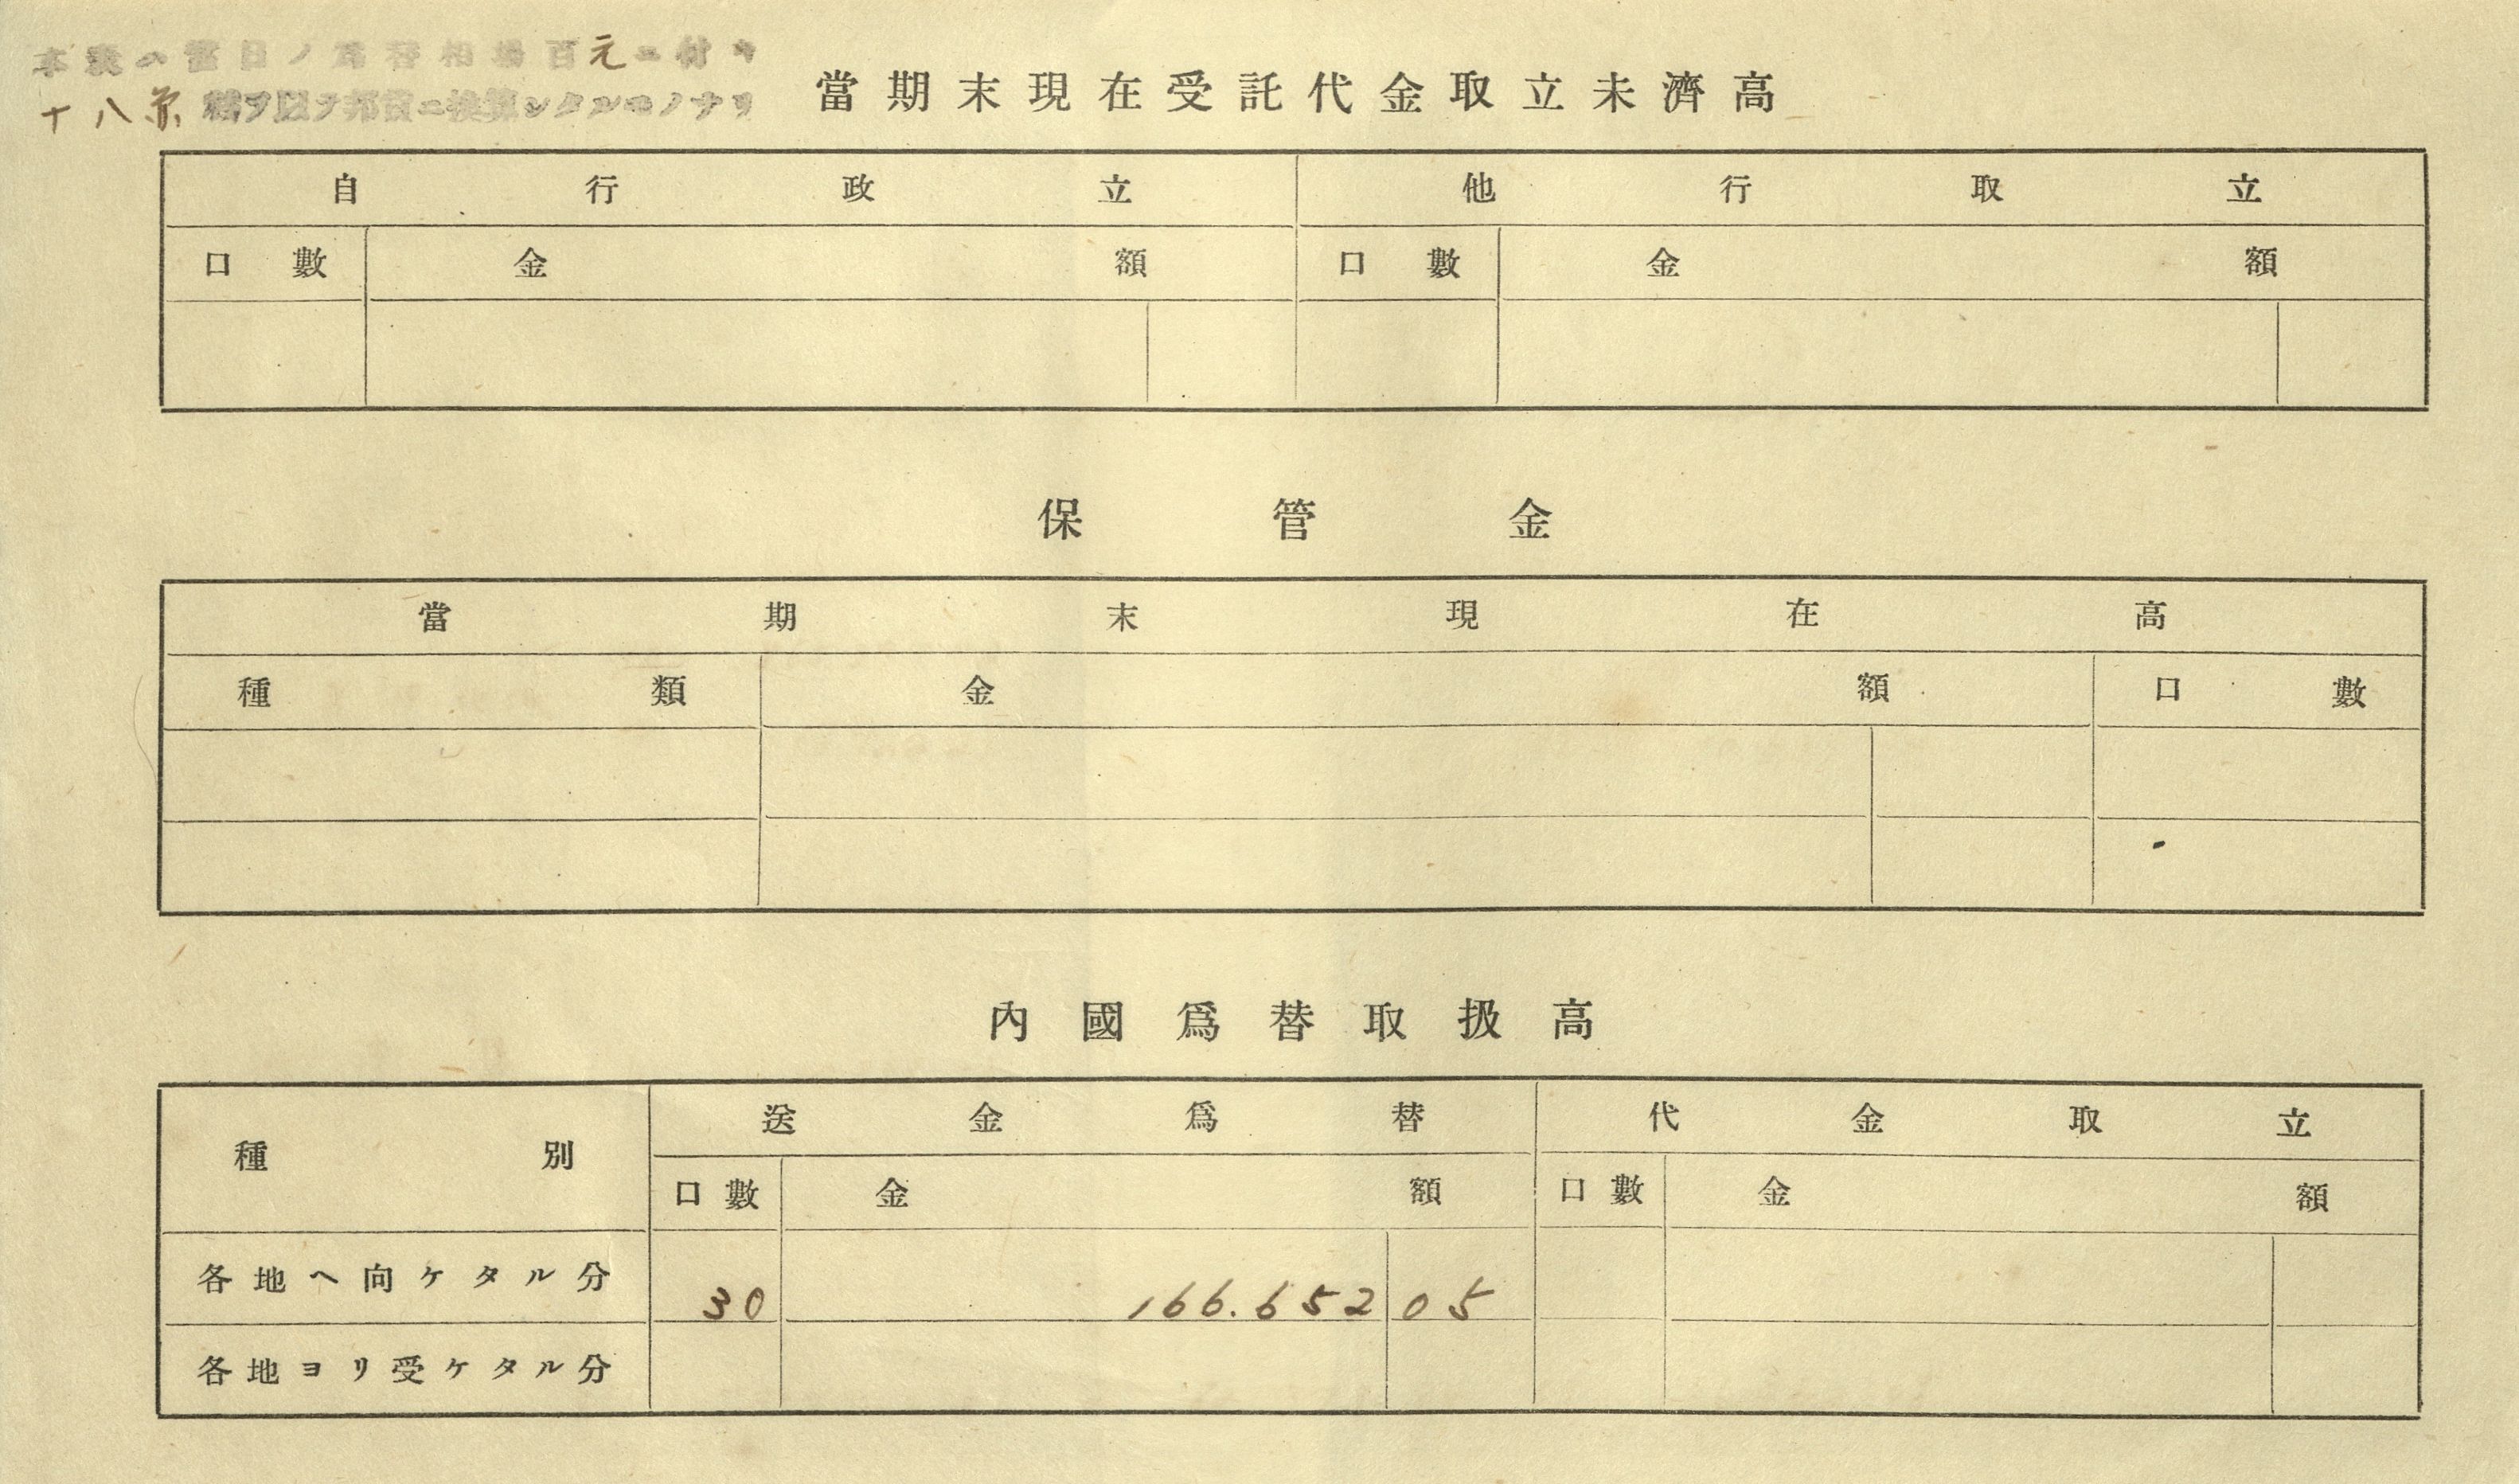 本表ハ當日ノ爲替相場百元ニ付キ
十八弗 替ヲ以テ邦貨ニ換算シタルモノナリ
當期末現在受託代金取立未濟高
自行政立 他行取立
口數 金額 口數 金額
保管金
當期末現在高
種類 金額 口數
內國爲替取扱高
種別 送金爲替 代金取立
口數 金額 口數 金額
各地ヘ向ケタル分 30 166.652 05
各地ヨリ受ケタル分